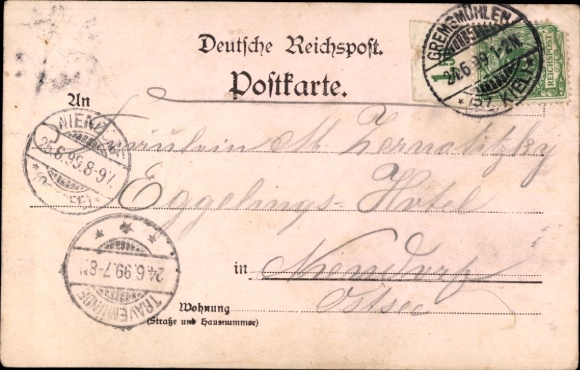 Deutsche Reichspost.
Postkarte.
GREMSMÜHLEN
24.6.99.1-2N.
* 157. KIEL *
REICHSPOST
An
Fräulein M. Zernatitzky
Eggelings-Hotel
in Niendorf
Ostsee
24.6.99.8-9N.
TRAVEMÜNDE
24.6.99.7-8N
Wohnung
(Straße und Hausnummer)